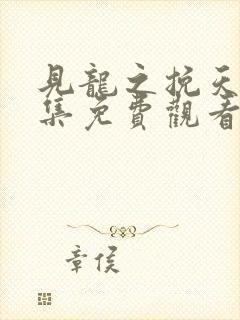 見龍之挽天
集免費觀看
章侯